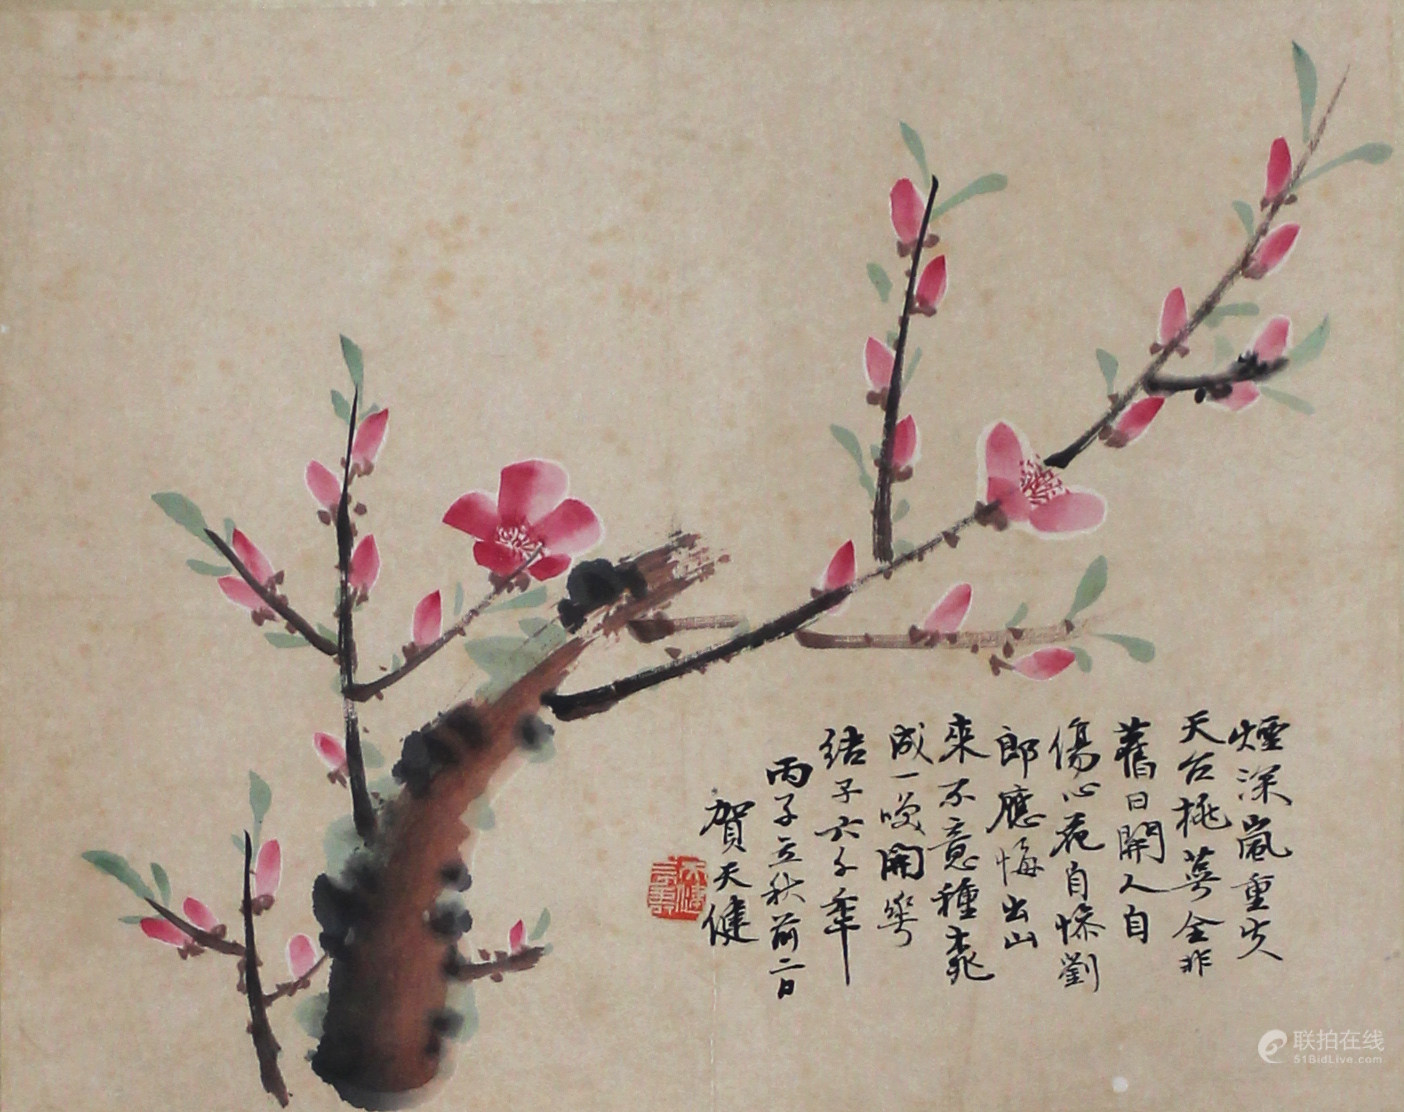 煙深嵐重失
天台桃萼全非
舊日開人自
傷心花自慘劉
郎應悔出山
來不意種桃
成一嘆開華
結子六千年
丙子立秋前二日
賀天健
联拍在线
51BidLive.com